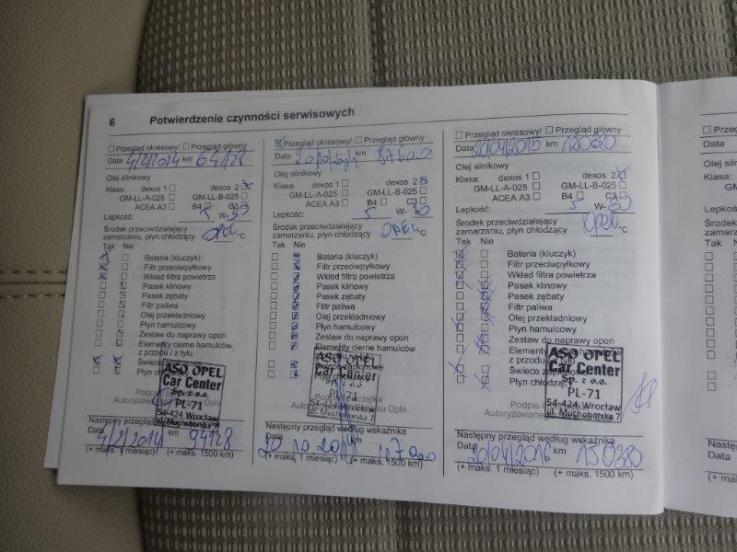 6 Potwierdzenie czynności serwisowych
Przegląd okresowy/ Przegląd główny
Data 4/2/2014 km 64128
Olej silnikowy
Klasa: dexos 1 dexos 2
GM-LL-A-025 GM-LL-B-025
ACEA A3 B4 C3
Lepkość: 5 W- 30
Środek przeciwdziałający
zamarzaniu, płyn chłodzący OPEL °C
Tak Nie
Bateria (kluczyk)
Filtr przeciwpyłkowy
Wkład filtra powietrza
Pasek klinowy
Pasek zębaty
Filtr paliwa
Olej przekładniowy
Płyn hamulcowy
Zestaw do naprawy opon
Elementy cierne hamulców
z przodu / z tyłu
Świece
Płyn
ASO OPEL
Car Center
Sp. z o.o.
PL-71
54-424 Wrocław
ul. Muchoborska 7
Następny przegląd według wskaźnika
Data 4/2/2014 km 94128
(+ maks. 1 miesiąc) (+ maks. 1500 km)
Przegląd okresowy/ Przegląd główny
Data km 87600
Olej silnikowy
Klasa: dexos 1 dexos 2
GM-LL-A-025 GM-LL-B-025
ACEA A3 B4 C3
Lepkość: 5 W- 30
Środek przeciwdziałający
zamarzaniu, płyn chłodzący OPEL °C
Tak Nie
Bateria (kluczyk)
Filtr przeciwpyłkowy
Wkład filtra powietrza
Pasek klinowy
Pasek zębaty
Filtr paliwa
Olej przekładniowy
Płyn hamulcowy
Zestaw do naprawy opon
Elementy cierne hamulców
ASO OPEL
Car Center
Sp. z o.o.
PL-71
54-424 Wrocław
ul. Muchoborska 7
Następny przegląd według wskaźnika
Data km
(+ maks. 1 miesiąc) (+ maks. 1500 km)
Przegląd okresowy/ Przegląd główny
Data 20/04/2015 km 120280
Olej silnikowy
Klasa: dexos 1 dexos 2
GM-LL-A-025 GM-LL-B-025
ACEA A3 B4 C3
Lepkość: 5 W- 30
Środek przeciwdziałający
zamarzaniu, płyn chłodzący OPEL °C
Tak Nie
Bateria (kluczyk)
Filtr przeciwpyłkowy
Wkład filtra powietrza
Pasek klinowy
Pasek zębaty
Filtr paliwa
Olej przekładniowy
Płyn hamulcowy
Zestaw do naprawy opon
Elementy
z przodu
Świece zapłonowe
Płyn chłodzący
ASO OPEL
Car Center
Sp. z o.o.
PL-71
54-424 Wrocław
ul. Muchoborska 7
Następny przegląd według wskaźnika
Data 20/04/2016 km 150280
(+ maks. 1 miesiąc) (+ maks. 1500 km)